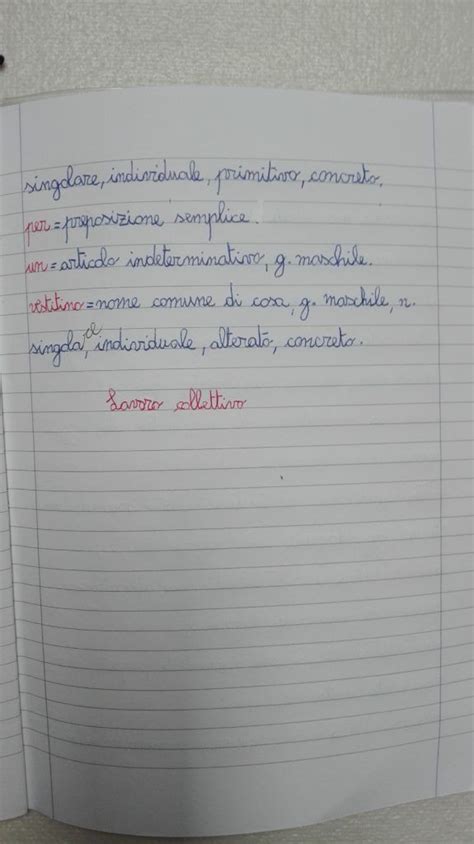 singolare, individuale, primitivo, concreto.
per = preposizione semplice.
un = articolo indeterminativo, g. maschile.
vestitino = nome comune di cosa, g. maschile, n.
singola, individuale, alterato, concreto.
Lavoro collettivo